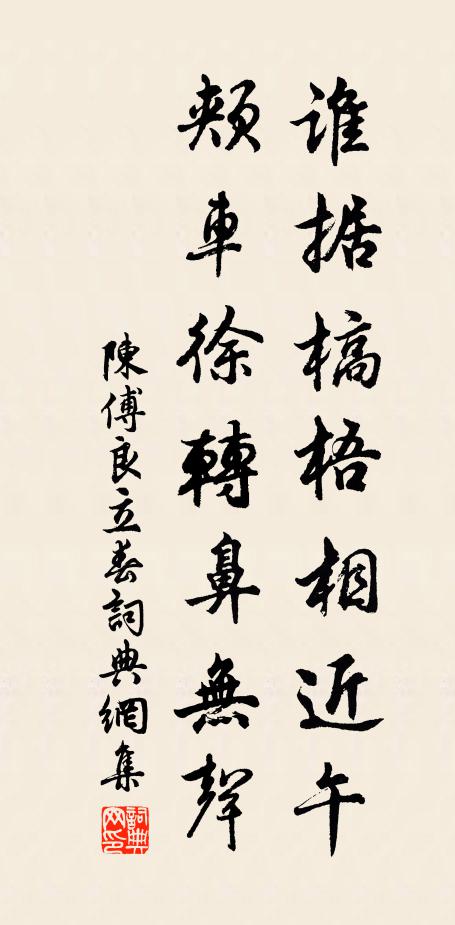 誰据槁梧相近午
頰車徐轉鼻無聲
陳傅良立春詞典網集
詞典網印